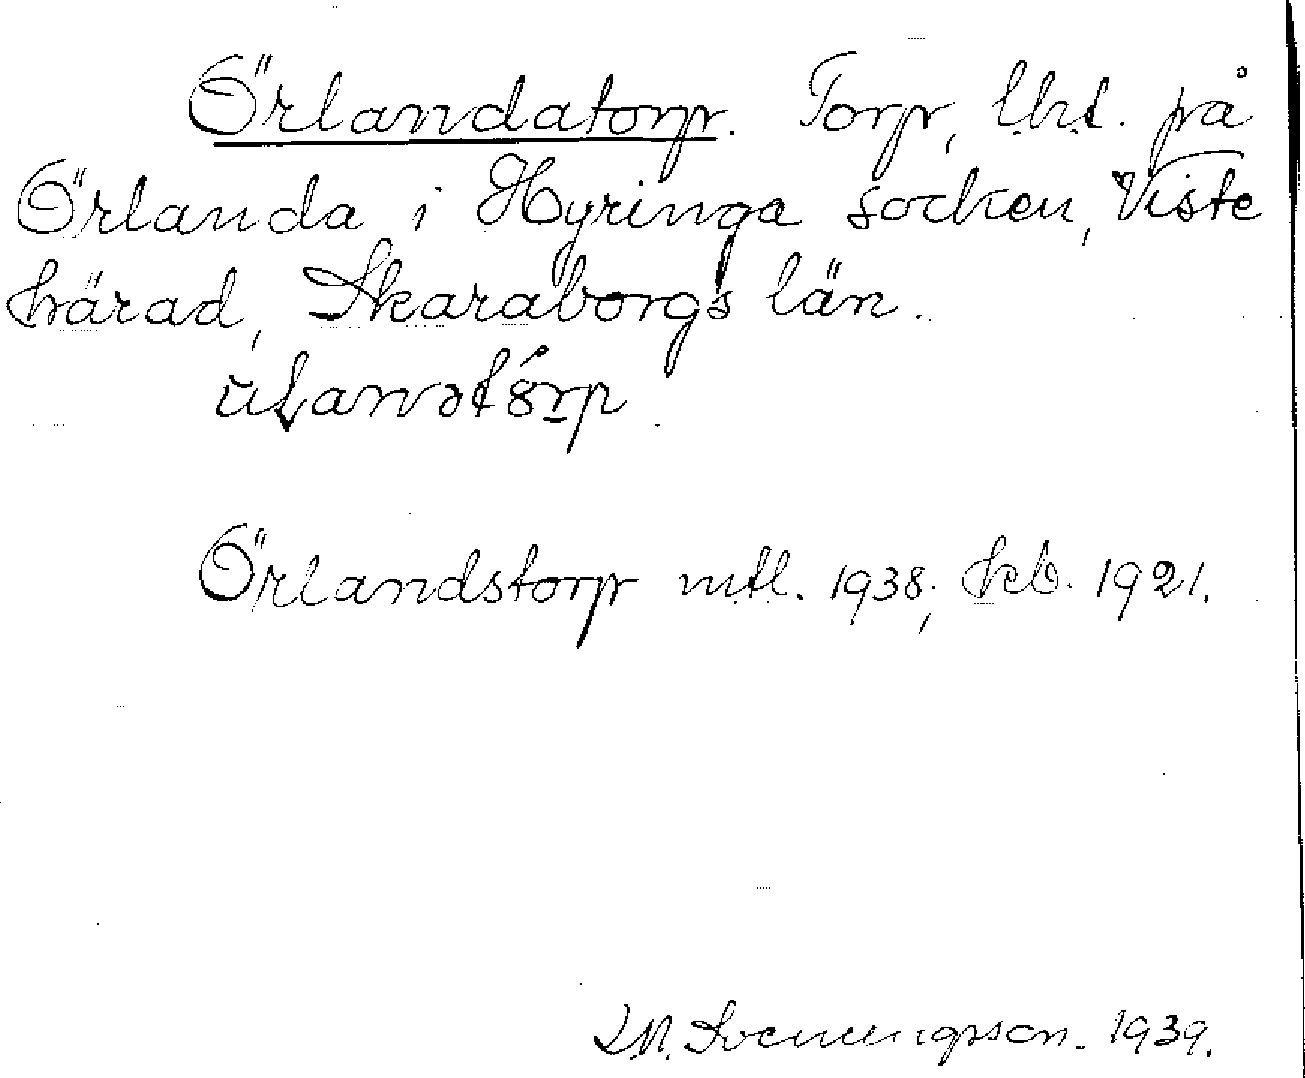 Örlandatorp. Torp, lht. på
Örlanda i Hyringa socken, Viste
härad, Skaraborgs län.
Örlandstorp mtl. 1938; kb. 1921.
Svenungsson. 1939.